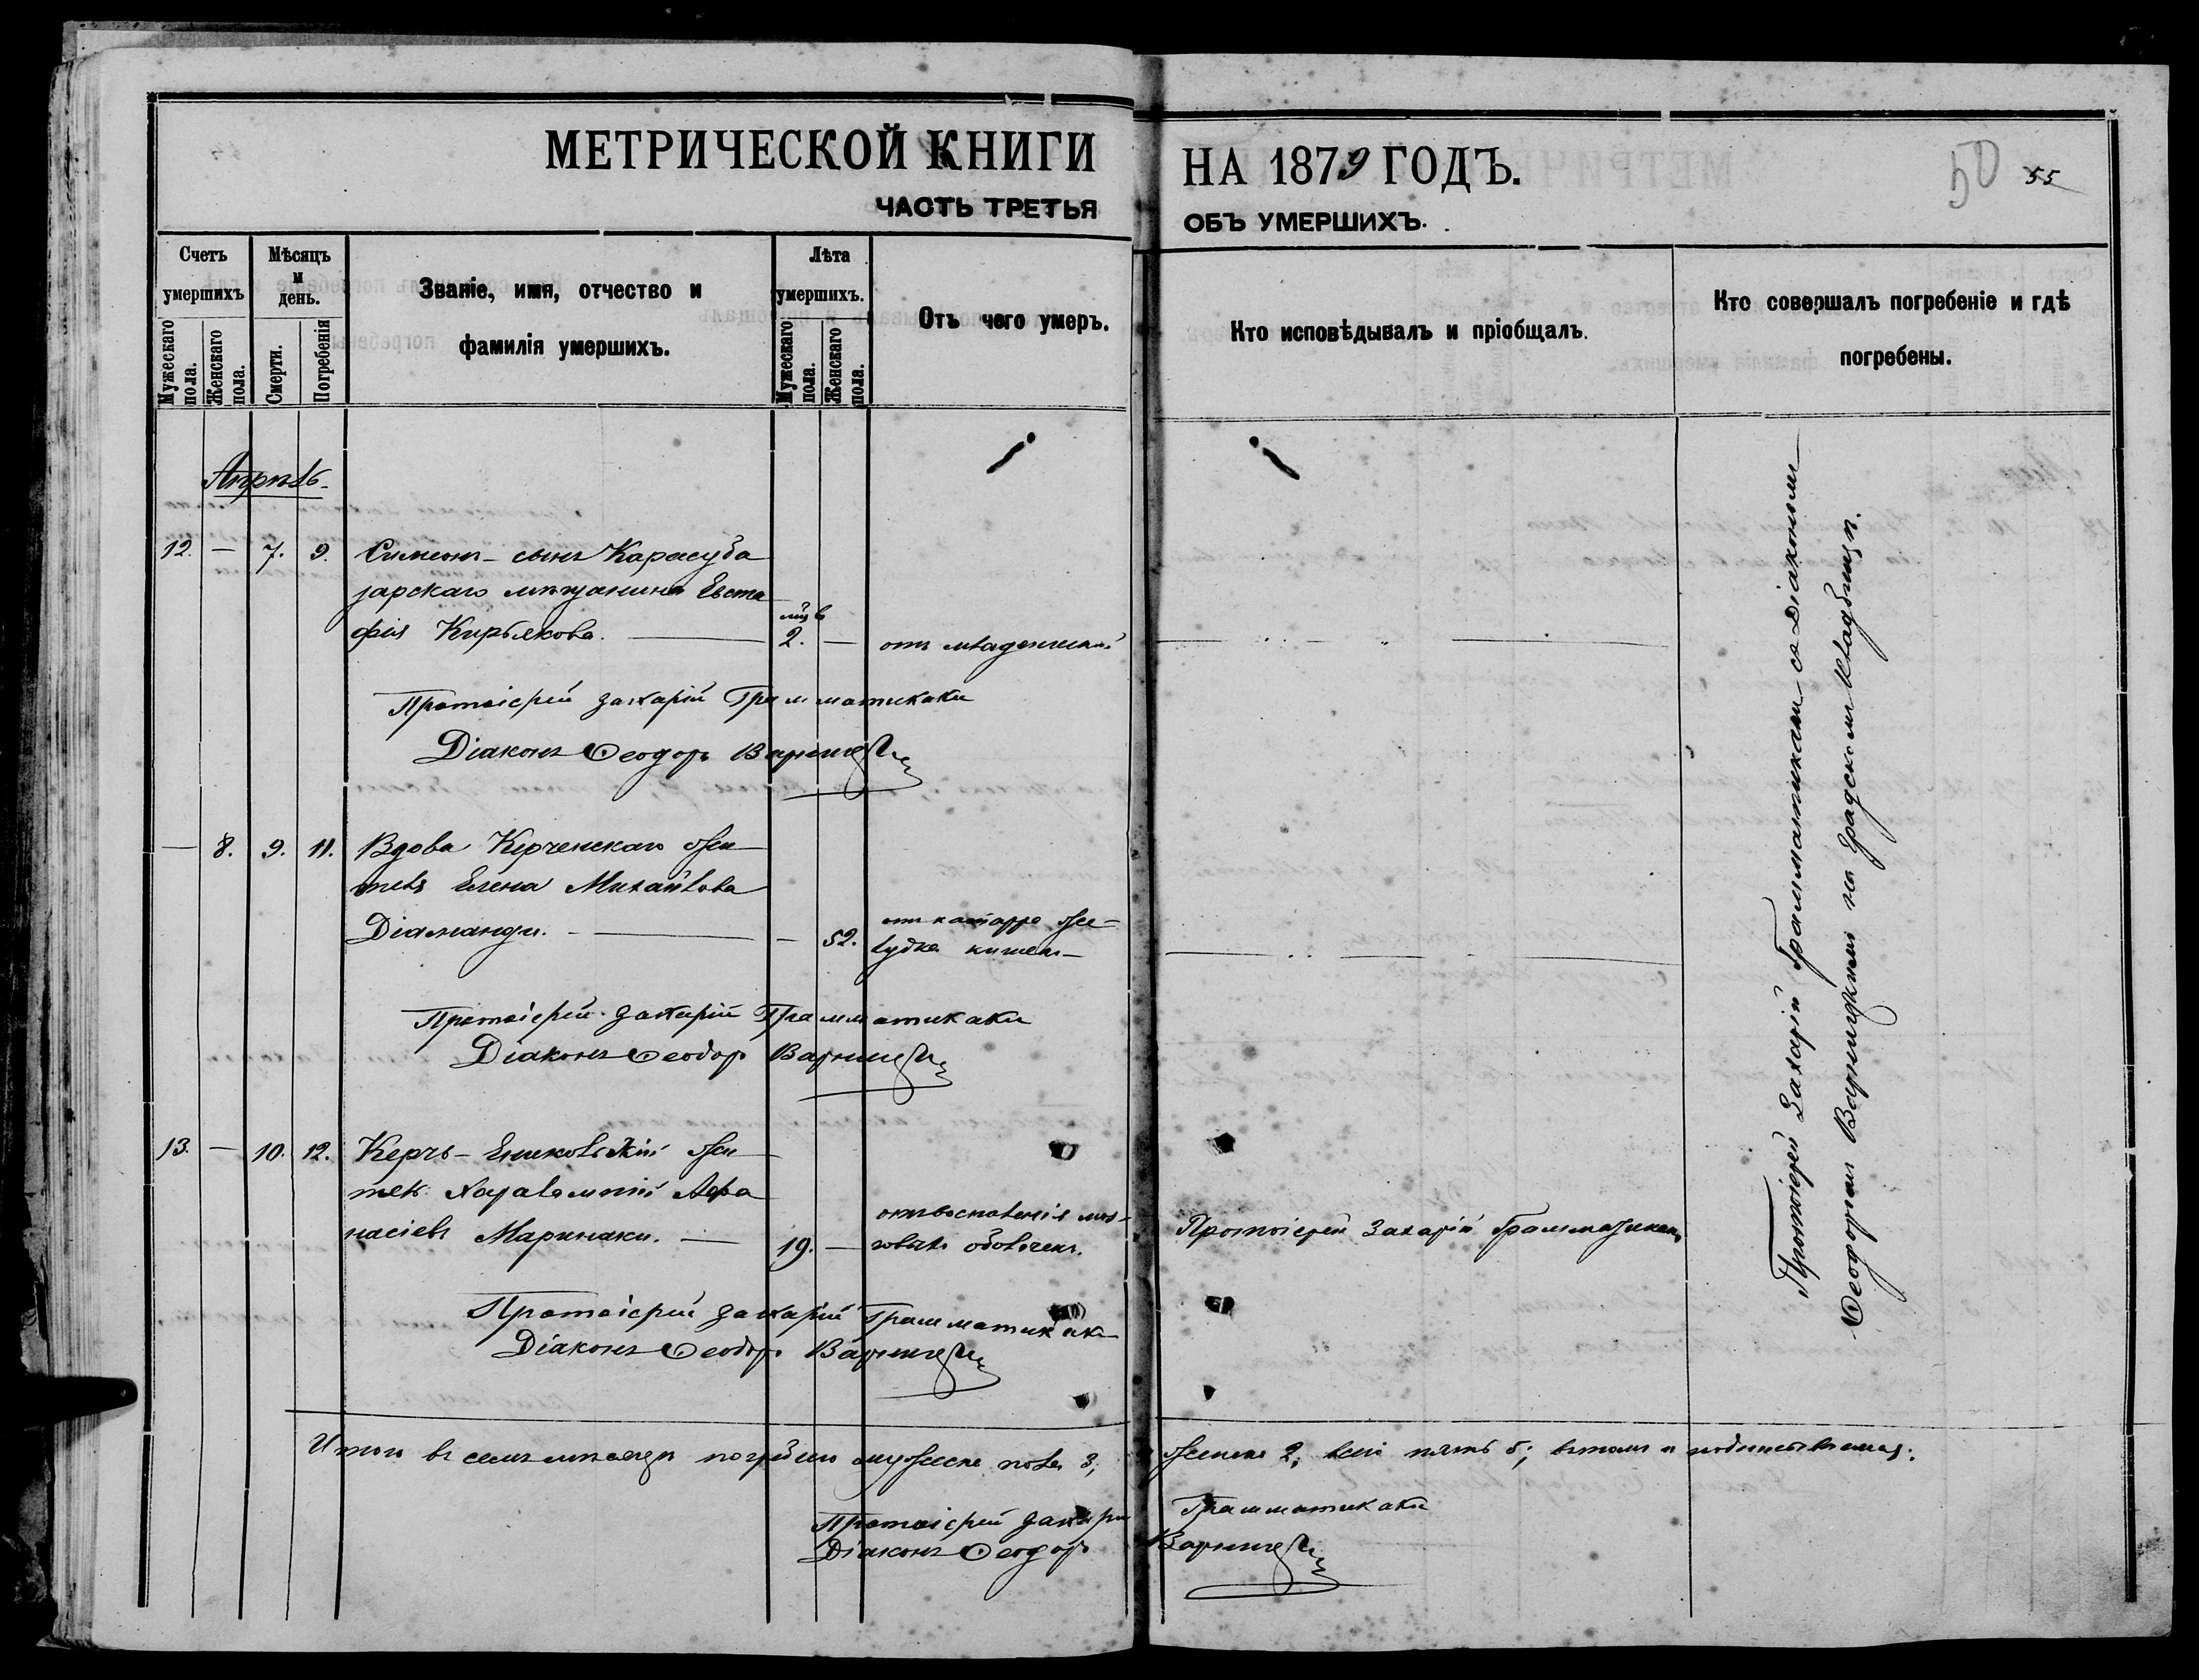 МЕТРИЧЕСКОЙ КНИГИ НА 1879 ГОДЪ.
ЧАСТЬ ТРЕТЬЯ ОБЪ УМЕРШИХЪ.
50 55
Счетъ умершихъ
Мужескаго пола.
Женскаго пола.
Мѣсяцъ и день.
Смерти.
Погребенія
Званіе, имя, отчество и
фамилія умершихъ.
Лѣта умершихъ.
Мужескаго пола.
Женскаго пола.
Отъ чего умеръ.
Кто исповѣдывалъ и пріобщалъ.
Кто совершалъ погребеніе и гдѣ
погребены.
Апрѣль
12. — 7. 9. Симеонъ - сынъ Карасуба
зарскаго мѣщанина Евста
фія Кирьякова. — мцъ 2. — отъ младенческой
Протоіерей Захарій Грамматикаки
Діаконъ Ѳеодоръ
— 8. 9. 11. Вдова Керченскаго жи
теля Елена Михайлова
Діаманди. — — 52. отъ катарра же-
лудка кишекъ
Протоіерей Захарій Грамматикаки
Діаконъ Ѳеодоръ
13. — 10. 12. Керчь-Еникольскій жи
тель Харалампій Аѳа
насіевъ Маринаки. — 19. — отъ воспаленія моз-
говыхъ оболочекъ. Протоіерей Захарій Грамматикаки
Протоіерей Захарій Грамматикаки
Діаконъ Ѳеодоръ
Протоіерей Захарій Грамматикаки съ Діакономъ
Ѳеодоромъ на Градскомъ кладбищѣ.
Итого въ семъ мѣсяцѣ погребено мужеска пола 3, женска 2, всего пять 5; въ томъ и подписываемся:
Протоіерей Захарій Грамматикаки
Діаконъ Ѳеодоръ